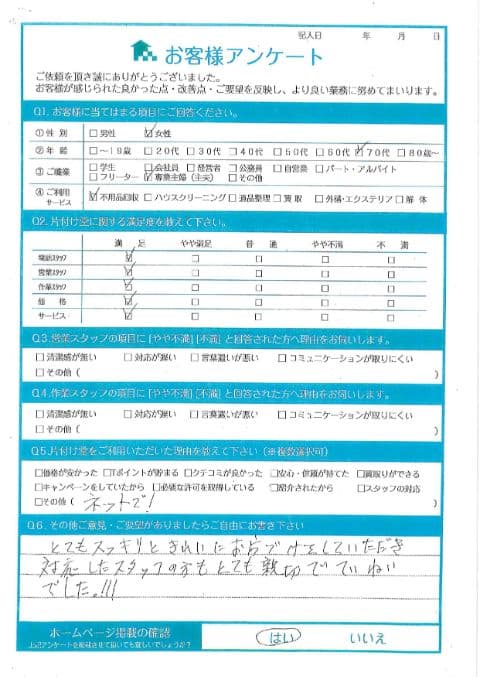 記入日 年 月 日
お客様アンケート
ご依頼を頂き誠にありがとうございました。
お客様が感じられた良かった点・改善点・ご要望を反映し、より良い業務に努めてまいります。
Q1. お客様に当てはまる項目にご回答ください。
①性 別 □男性 ☑女性
②年 齢 □〜19歳 □20代 □30代 □40代 □50代 □60代 ☑70代 □80歳〜
③ご職業 □学生 □会社員 □経営者 □公務員 □自営業 □パート・アルバイト
□フリーター ☑専業主婦(主夫) □その他
④ご利用サービス ☑不用品回収 □ハウスクリーニング □遺品整理 □買取 □外構・エクステリア □解体
Q2. 片付け堂に関する満足度を教えて下さい。
満 足 やや満足 普 通 やや不満 不 満
電話スタッフ ☑ □ □ □ □
営業スタッフ ☑ □ □ □ □
作業スタッフ ☑ □ □ □ □
価 格 ☑ □ □ □ □
サービス ☑ □ □ □ □
Q3. 営業スタッフの項目に[やや不満][不満]と回答された方へ理由をお伺いします。
□清潔感が無い □対応が遅い □言葉遣いが悪い □コミュニケーションが取りにくい
□その他( )
Q4. 作業スタッフの項目に[やや不満][不満]と回答された方へ理由をお伺いします。
□清潔感が無い □対応が遅い □言葉遣いが悪い □コミュニケーションが取りにくい
□その他( )
Q5.片付け堂をご利用いただいた理由を教えて下さい(※複数選択可)
□価格が安かった □Tポイントが貯まる □クチコミが良かった □安心・信頼が持てた □買取りができる
□キャンペーンをしていたから □必要な許可を取得している □紹介されたから □スタッフの対応
□その他( ネットで! )
Q6. その他ご意見・ご要望がありましたらご自由にお書き下さい
とてもスッキリときれいにお片づけをしていただき
対応したスタッフの方もとても親切でていねい
でした。!!!
ホームページ掲載の確認 はい いいえ
上記アンケートを掲載させて頂いても宜しいでしょうか?